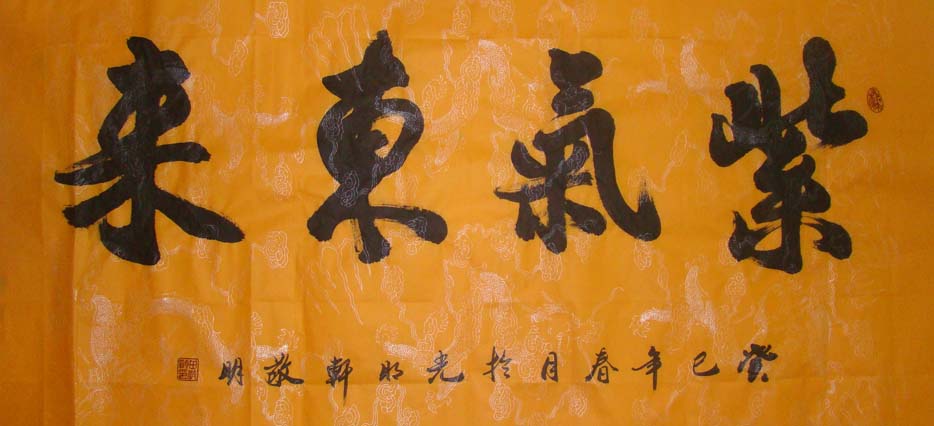 紫氣東来
癸巳年春月於光明軒敬明